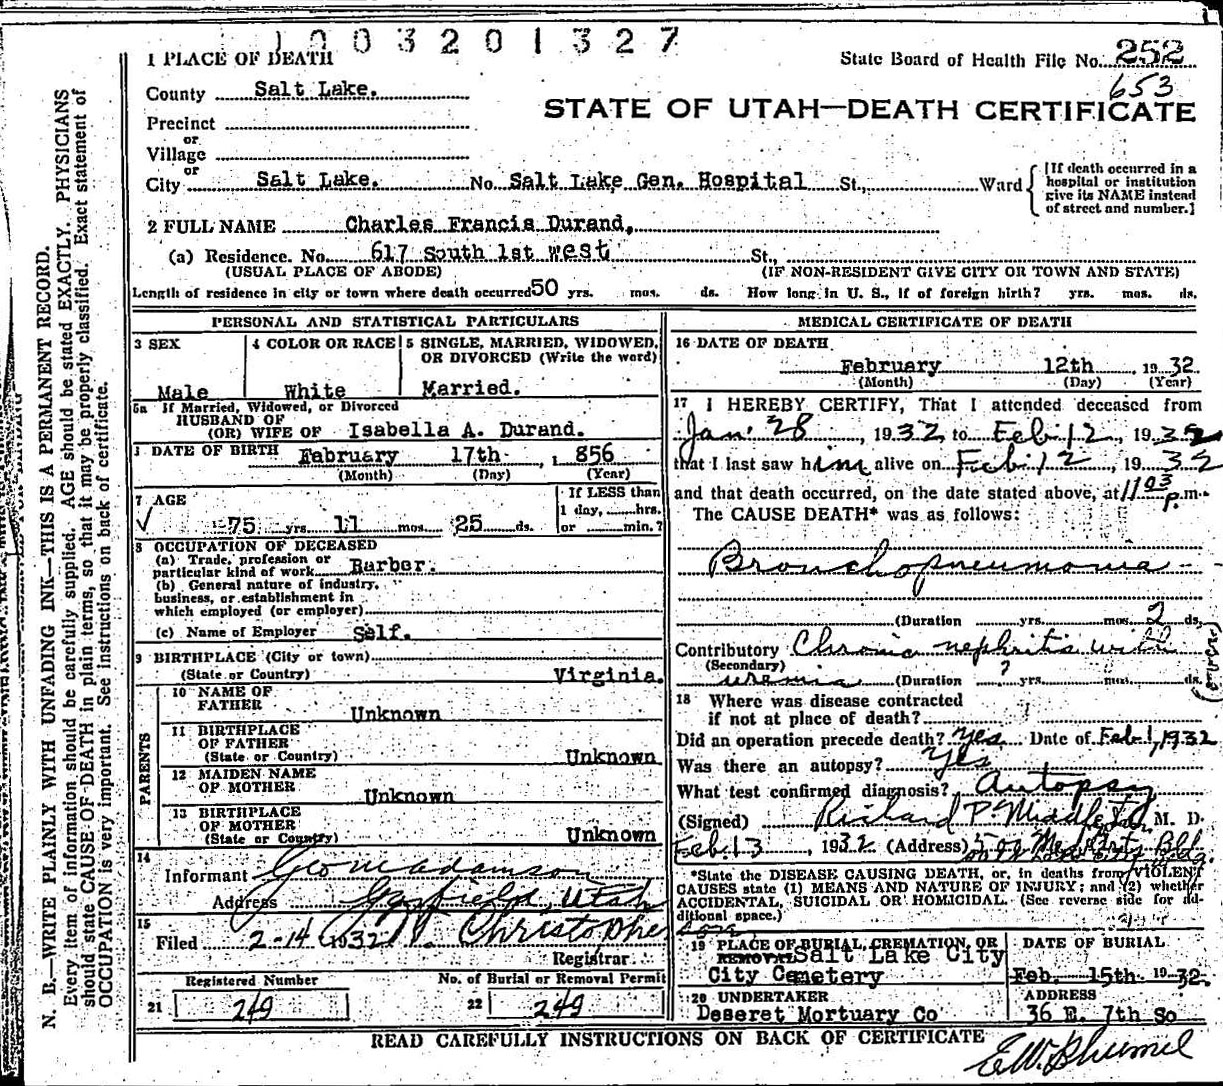 1003201327
1 PLACE OF DEATH
State Board of Health File No. 252
653
County Salt Lake.
STATE OF UTAH—DEATH CERTIFICATE
Precinct
or
Village
or
City Salt Lake. No. Salt Lake Gen. Hospital St., Ward
[If death occurred in a
hospital or institution
give its NAME instead
of street and number.]
2 FULL NAME Charles Francis Durand,
(a) Residence. No. 617 South 1st west St.,
(USUAL PLACE OF ABODE) (IF NON-RESIDENT GIVE CITY OR TOWN AND STATE)
Length of residence in city or town where death occurred 50 yrs. mos. ds. How long in U. S., if of foreign birth? yrs. mos. ds.
PERSONAL AND STATISTICAL PARTICULARS
3 SEX
Male
4 COLOR OR RACE
White
5 SINGLE, MARRIED, WIDOWED,
OR DIVORCED (Write the word)
Married.
5a If Married, Widowed, or Divorced
HUSBAND OF
(OR) WIFE OF Isabella A. Durand.
DATE OF BIRTH February 17th, 1856
(Month) (Day) (Year)
7 AGE
75 yrs. 11 mos. 25 ds.
If LESS than
1 day, hrs.
or min.?
8 OCCUPATION OF DECEASED
(a) Trade, profession or
particular kind of work Barber.
(b) General nature of industry,
business, or establishment in
which employed (or employer)
(c) Name of Employer Self.
9 BIRTHPLACE (City or town)
(State or Country) Virginia.
PARENTS
10 NAME OF
FATHER Unknown
11 BIRTHPLACE
OF FATHER
(State or Country) Unknown
12 MAIDEN NAME
OF MOTHER Unknown
13 BIRTHPLACE
OF MOTHER
(State or Country) Unknown
14
Informant Geo M Adamson
Address Garfield, Utah
15
Filed 2-14 1932 Christopherson
Registrar
Registered Number
21 249
No. of Burial or Removal Permit
22 249
MEDICAL CERTIFICATE OF DEATH
16 DATE OF DEATH
February 12th, 1932
(Month) (Day) (Year)
17 I HEREBY CERTIFY, That I attended deceased from
Jan 28, 1932 to Feb 12, 1932
that I last saw him alive on Feb 12, 1932
and that death occurred, on the date stated above, at 11 03 P.m.
The CAUSE DEATH* was as follows:
Bronchopneumonia
(Duration yrs. mos. 2 ds.
Contributory Chronic nephritis with
(Secondary)
uremia (Duration ? yrs. mos. ds.
(over)
18 Where was disease contracted
if not at place of death?
Did an operation precede death? Yes Date of Feb 1, 1932
Was there an autopsy? Yes
What test confirmed diagnosis? Autopsy
(Signed) Richard P. Middleton M. D.
Feb 13, 1932 (Address)
*State the DISEASE CAUSING DEATH, or, in deaths from VIOLENT
CAUSES state (1) MEANS AND NATURE OF INJURY; and (2) whether
ACCIDENTAL, SUICIDAL OR HOMICIDAL. (See reverse side for ad-
ditional space.)
19 PLACE OF BURIAL, CREMATION, OR
REMOVAL Salt Lake City
City Cemetery
DATE OF BURIAL
Feb. 15th 1932
20 UNDERTAKER
Deseret Mortuary Co
ADDRESS
36 E. 7th So
READ CAREFULLY INSTRUCTIONS ON BACK OF CERTIFICATE
N. B.—WRITE PLAINLY WITH UNFADING INK—THIS IS A PERMANENT RECORD.
Every item of information should be carefully supplied. AGE should be stated EXACTLY. PHYSICIANS
should state CAUSE OF DEATH in plain terms, so that it may be properly classified. Exact statement of
OCCUPATION is very important. See instructions on back of certificate.